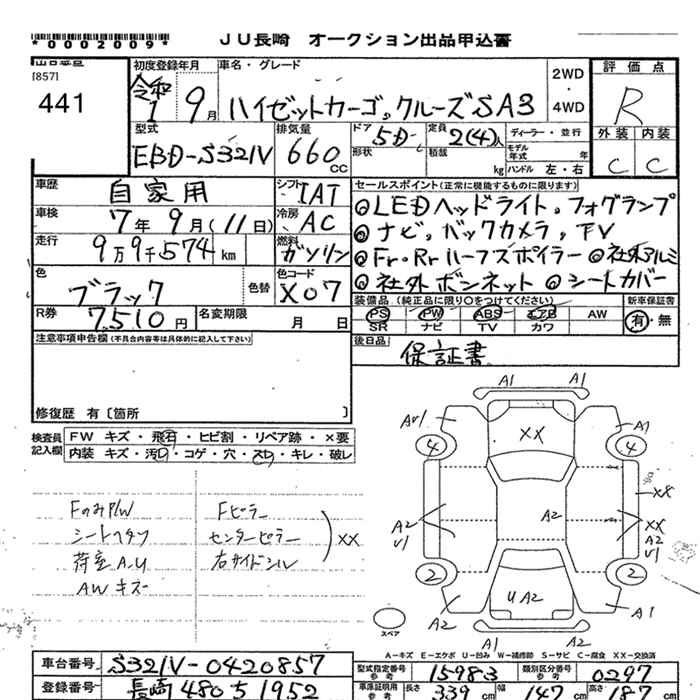 *0002009*
JU長崎 オークション出品申込書
出品番号
[857]
441
初度登録年月
令和
1 9月
車名・グレード
ハイゼットカーゴ クルーズSAⅢ
2WD
・
4WD
評価点
R
外装 内装
C C
型式
EBD-S321V
排気量
660
CC
ドア
5D
形状
定員
2(4)人
積載
kg
ディーラー・並行
モデル
年式 年
ハンドル 左・右
車歴
自家用
シフト
IAT
車検
7年9月(11日)
冷房
AC
走行
9万9千574 km
燃料
ガソリン
色
ブラック
色替
色コード
X07
R券
7,510円
名変期限
月 日
セールスポイント(正常に機能するものに限ります)
◎LEDヘッドライト。フォグランプ
◎ナビ。バックカメラ。TV
◎Fr・Rrハーフスポイラー ◎社外アルミ
◎社外ボンネット ◎シートカバー
装備品(純正品に限り○をつけてください)
新車保証書
PS PW ABS エアB AW
SR ナビ TV カワ
有・無
後日品
保証書
注意事項申告欄(不具合内容等は具体的に記入して下さい)
修復歴 有〔箇所 〕
検査員
記入欄
FW キズ・飛石・ヒビ割・リペア跡・×要
内装 キズ・汚D・コゲ・穴・スD・キレ・破レ
FのみP/W
シートヘタツ
荷室A・U
AWキズ
Fピラー
センターピラー
右サイドシル
XX
A1 A1
AU1 A1
4 4
XX
XX
A2
U1
A2
XX
A2
U1
2 2
U A2
A2 A1
A2
スペア
A-キズ E-エクボ U-凹み W-補修跡 S-サビ C-腐食 XX-交換済
車台番号 S321V-0420857
登録番号 長崎480ち1952
型式指定番号
参考
15983
類別区分番号
参考
0297
車庫証明用
参考
長さ 339 cm 幅 147 cm 高さ 187 cm